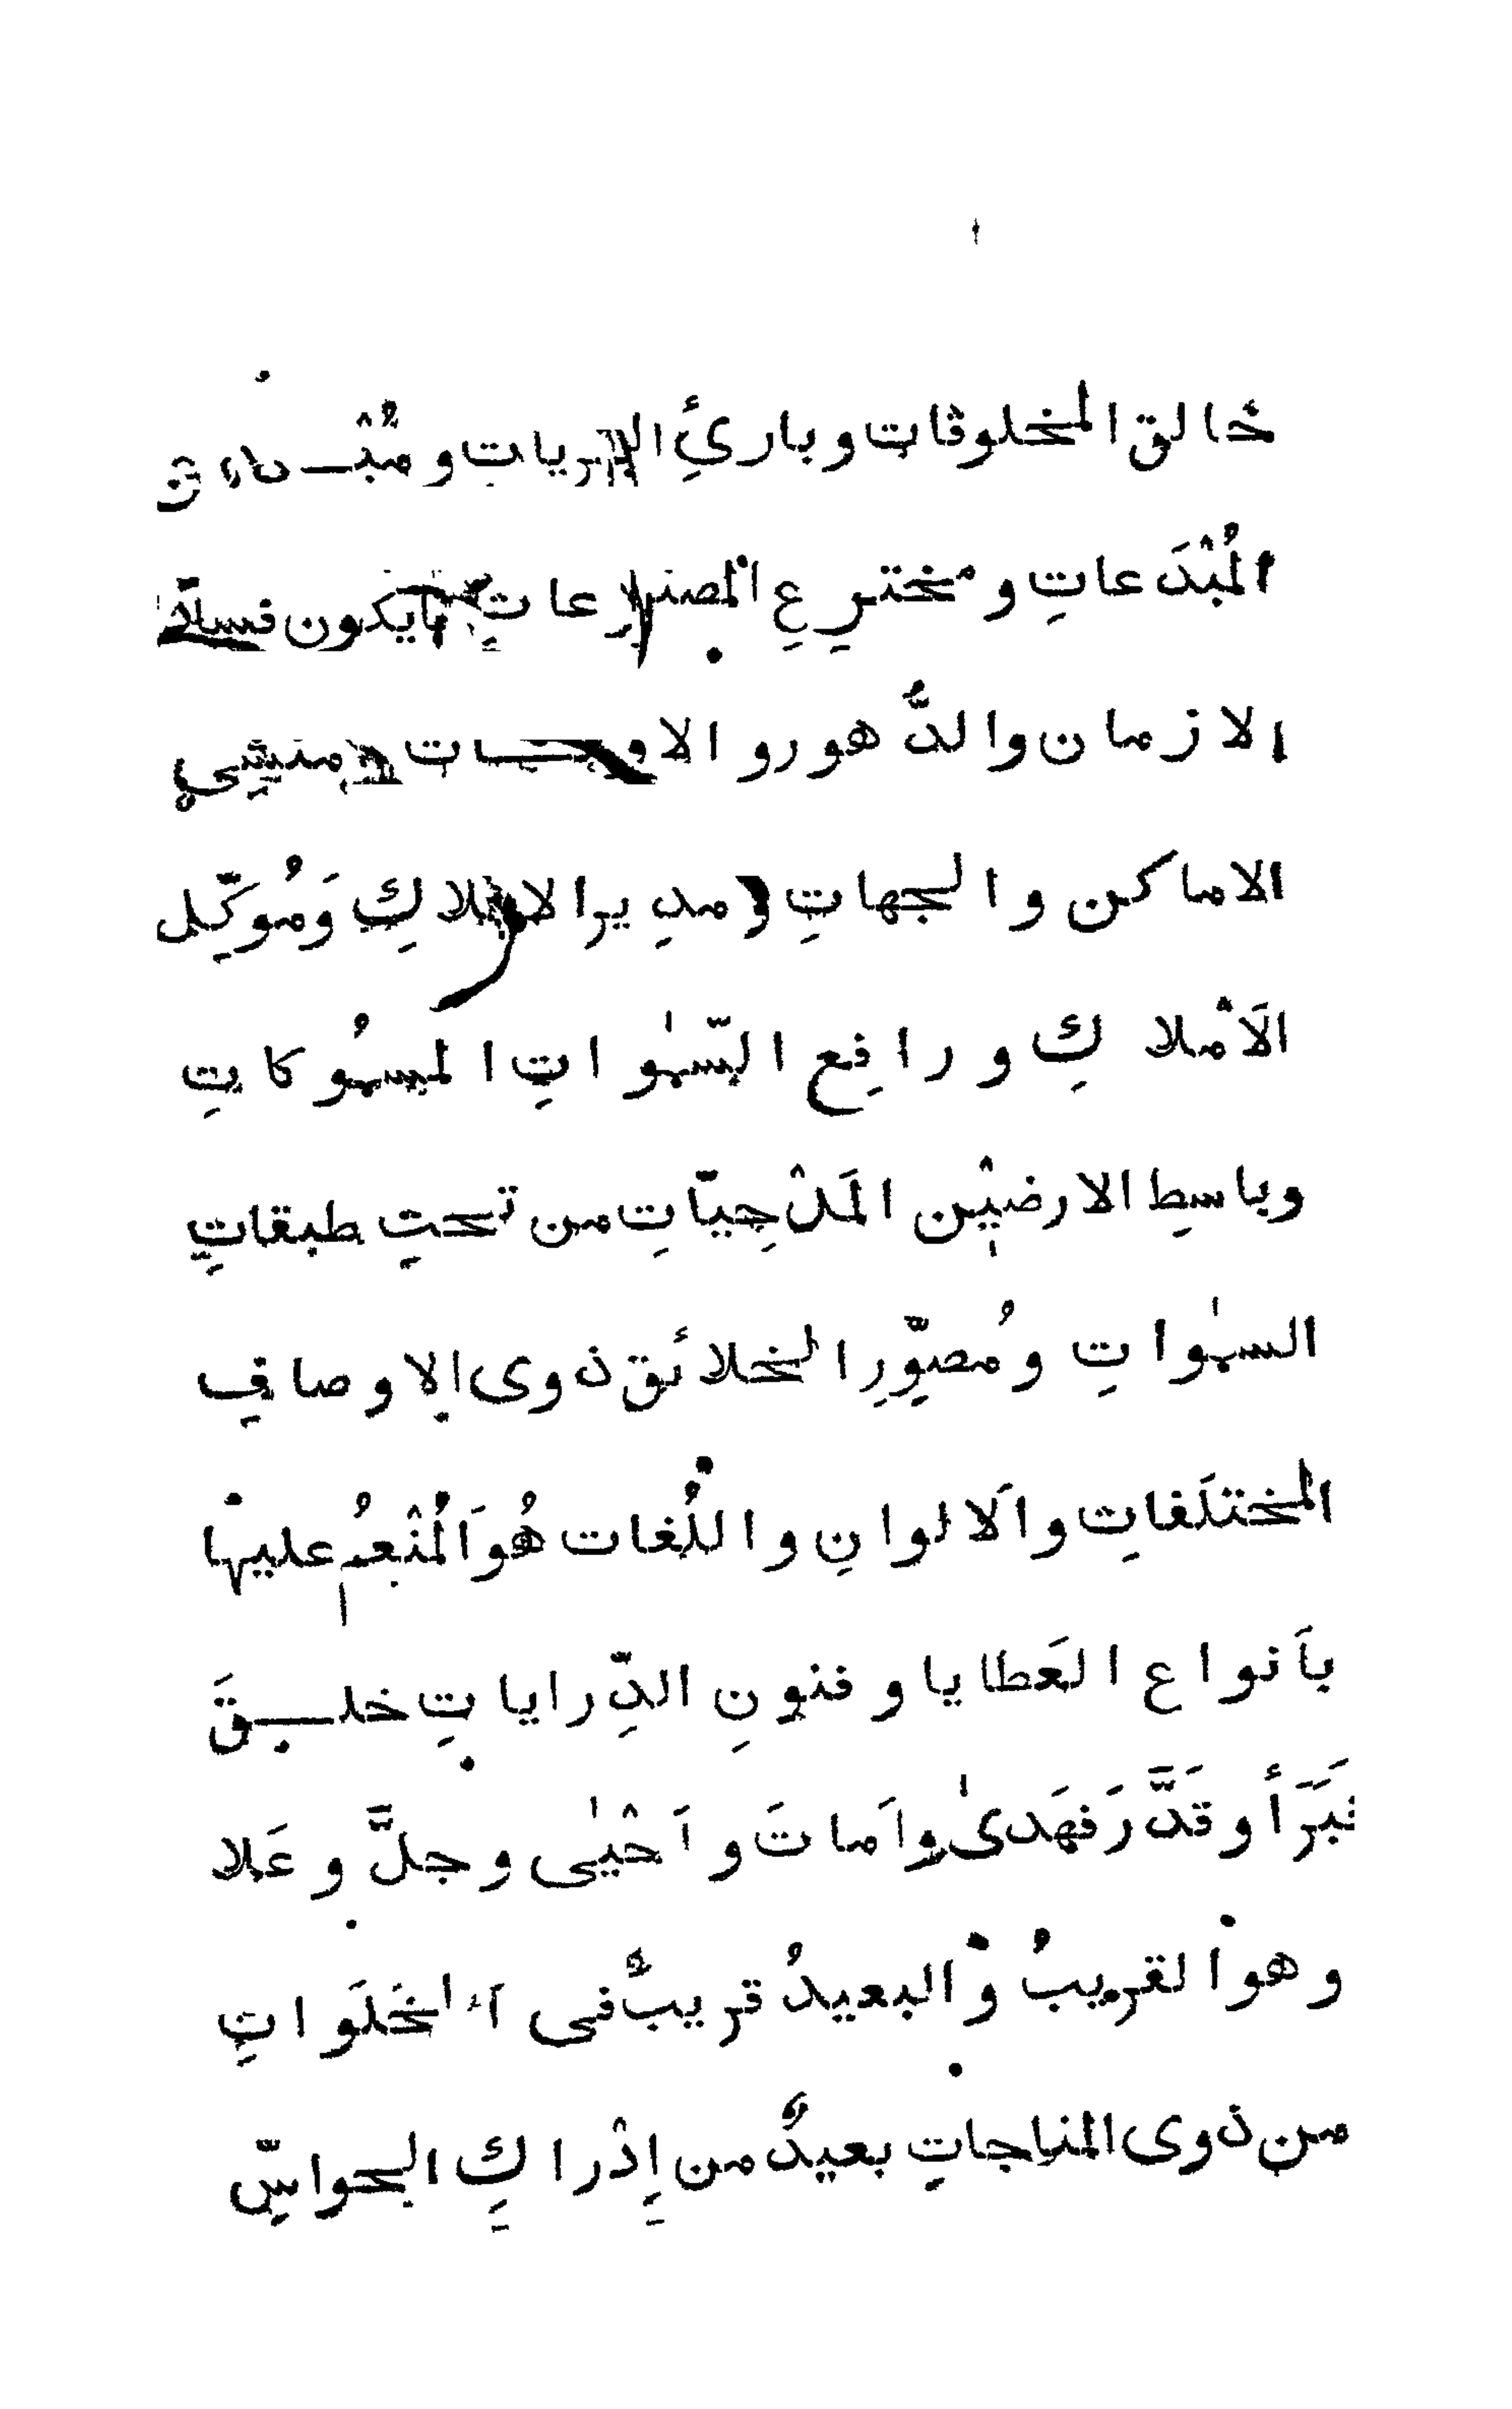 خالق المخلوقات وبارئِ البريات و
المُبْدَعاتِ ومخترعِ المصنوعاتِ
الازمان والدُّهور والاوقات ومنشِيِ
الاماكن والجهاتِ ومدِير الافلاكِ وَمُوَكِّل
الاَمْلاكِ ورافِع السّمٰواتِ المسمُوكاتِ
وباسطِ الارضيْن المَدْحِيّاتِ من تحتِ طبقاتِ
السمٰواتِ ومُصوِّرِ الخلائق ذوى الاوصافِ
المختلَفاتِ واَلالوانِ واللُّغات هُوَ المُنْعِمُ عليها
باَنواع العَطايا وفنونِ الدِّراياتِ خلقَ
فَبَرَأ وقَدَّرَ فهَدىٰ واَماتَ واَحْيٰى وجلَّ وعَلا
وهو القريبُ والبعيدُ قريبٌ فى الخَلَواتِ
من ذوى المناجاتِ بعيدٌ من إِدْراكِ الحواسِّ